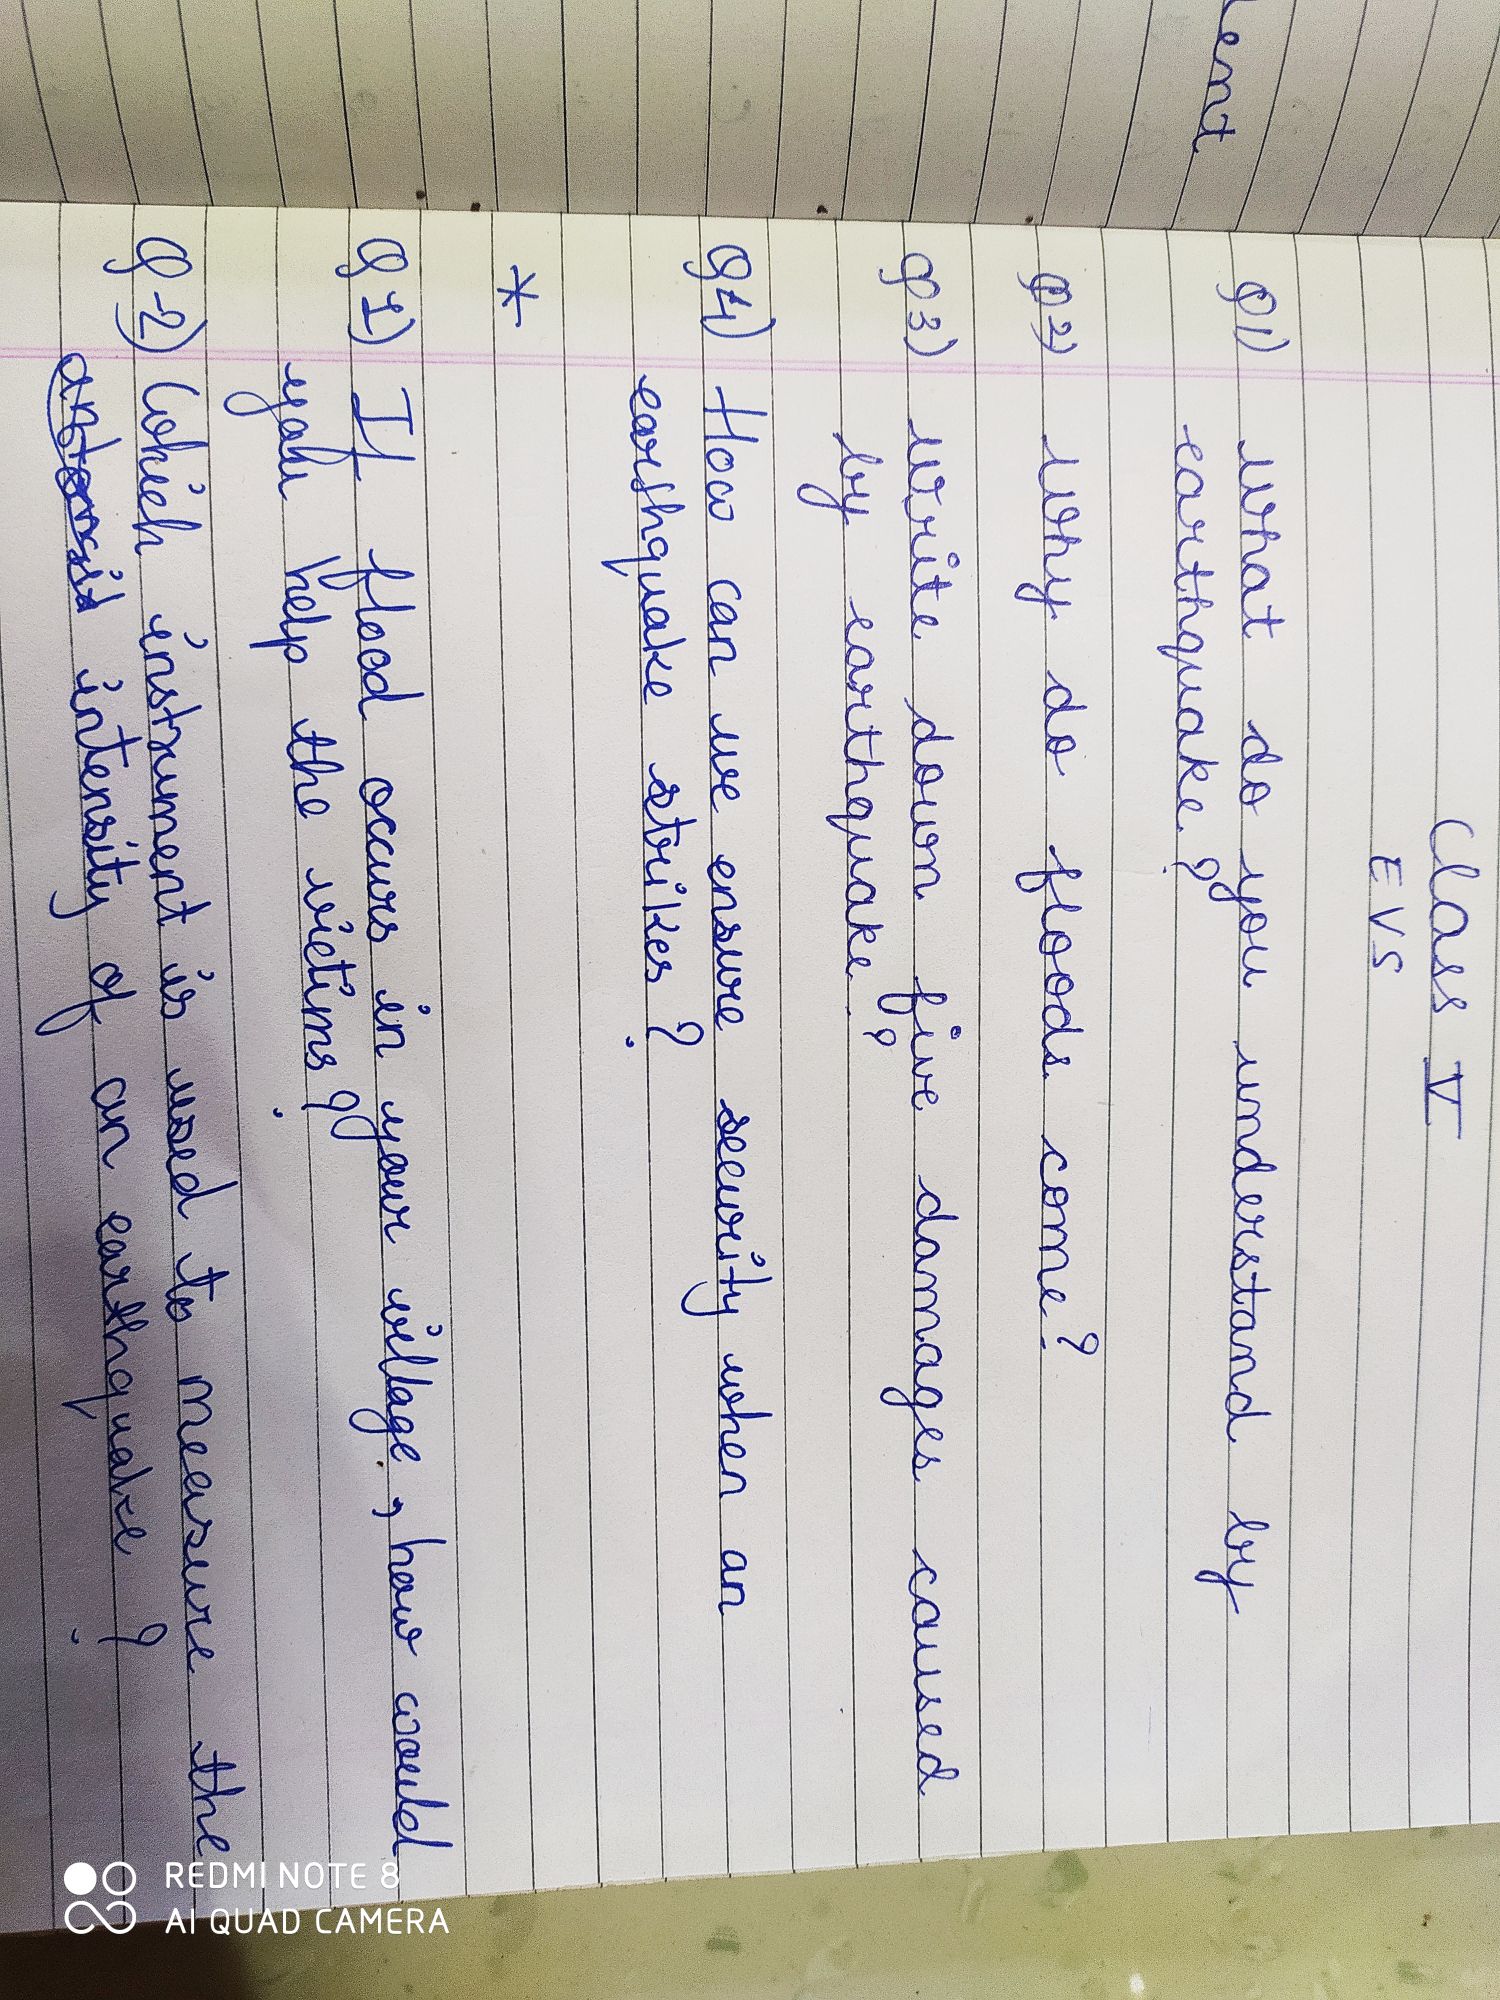 ent
Class V
EVS
Q1) what do you understand by
earthquake?
Q2) why do floods come?
Q3) write down five damages caused
by earthquake?
Q4) How can we ensure security when an
earshquake strikes?
*
Q1) If flood occurs in your village, how would
you help the victims?
Q-2) Which instrument is used to measure the
intensity of an earthquake?
REDMI NOTE 8
AI QUAD CAMERA